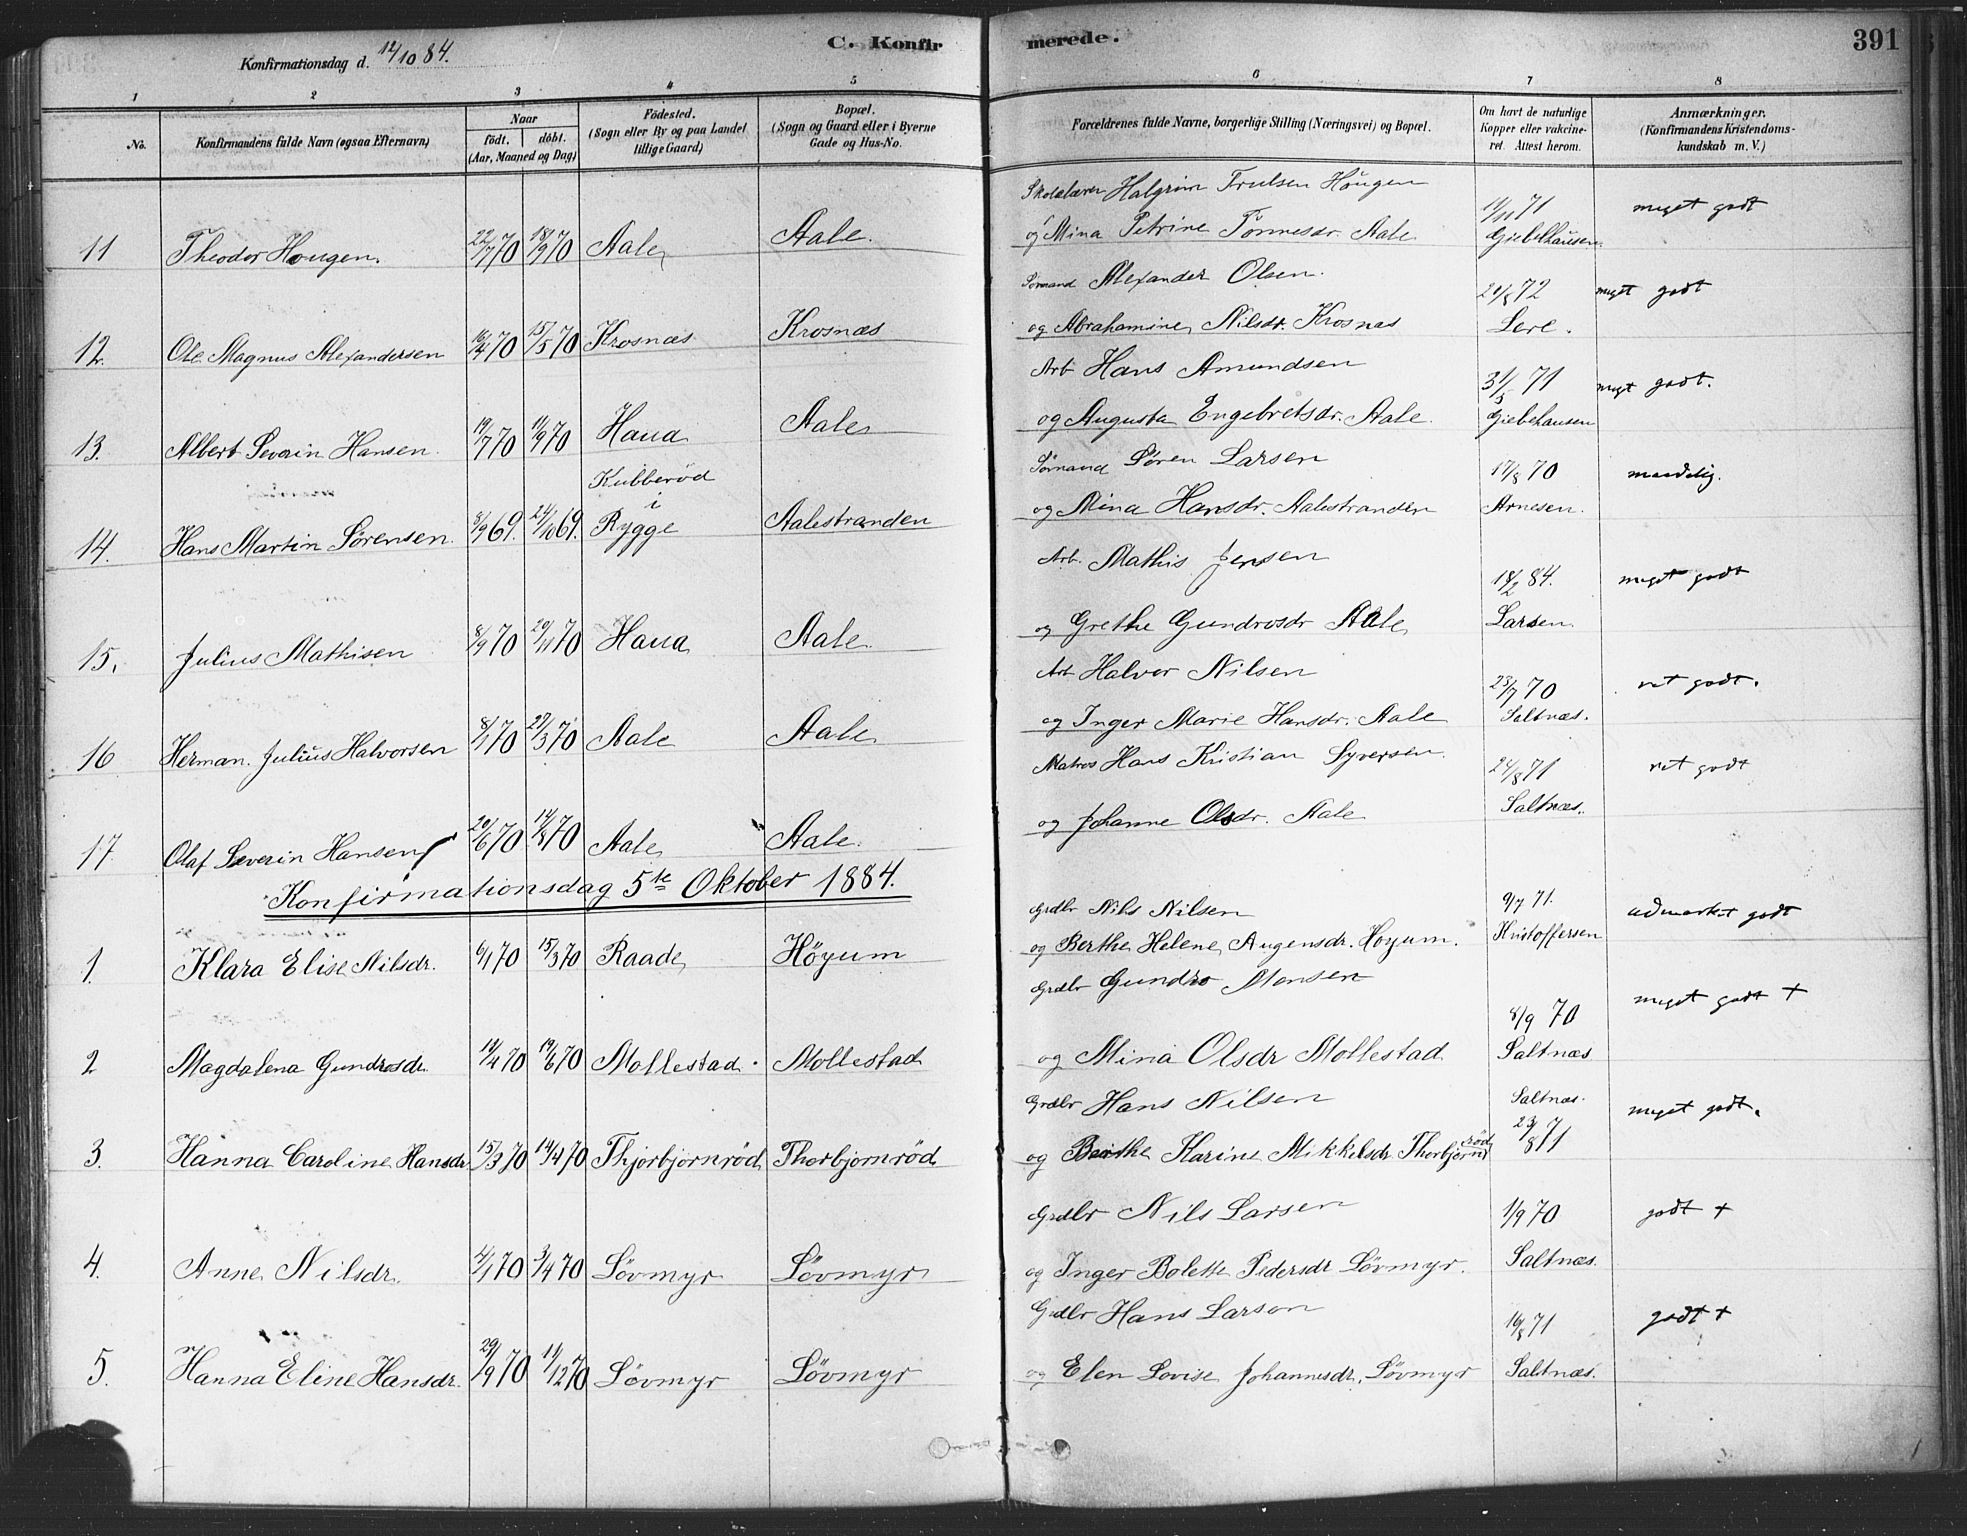 Konfirmationsdag d. 12/10 84.
C. Konfirmerede.
391
1 2 3 4 5 6 7 8
No.
Konfirmandens fulde Navn (ogsaa Efternavn)
Naar
født. døbt.
(Aar, Maaned og Dag)
Fødested.
(Sogn eller By og paa Landet
tillige Gaard)
Bopæl.
(Sogn og Gaard eller i Byerne
Gade og Hus-No.
Forældrenes fulde Navne, borgerlige Stilling (Næringsvei) og Bopæl.
Om havt de naturlige
Kopper eller vakcine-
ret. Attest herom.
Anmærkninger.
(Konfirmandens Kristendoms-
kundskab m. V.)
Skolelærer Halgrim Trulsen Hougen meget godt
11 Theodor Hougen. 22/7 70 18/9 70 Aale Aale. og Mina Petrine Tønnesdr. Aale 71 Giebelhausen
Sømand Alexander Olsen. 72 meget godt
12. Ole Magnus Alexandersen 16/4 70 15/5 70 Krosnæs Krosnæs og Abrahamine Nilsdr. Krosnæs Lere.
Arb Hans Amundsen 71 meget godt.
13. Albert Severin Hansen. 19/7 70 11/9 70 Haua Aale og Augusta Engebretsdr. Aale. Giebehausen
Sømand Søren Larsen 17/8 70 maadelig.
14. Hans Martin Sørensen. 8/9 69. 24/10 69. Kubberød i Rygge Aalestranden og Mina Hansdr. Aalestranden Arnesen.
Arb. Mathis Jensen 18/2 84. meget godt
15. Julius Mathisen 8/9 70 20/11 70 Haua Aale og Grethe Gundrosdr Aale Larsen
Arb Halvor Nilsen 23/7 70 ret godt.
16 Herman Julius Halvorsen 8/1 70 27/3 70 Aale Aale og Inger Marie Hansdr. Aale Saltnæs.
Matros Hans Kristian Syversen. 24/8 71 ret godt
17. Olaf Severin Hansen 20/6 70 14/8 70 Aale Aale. og Johanne Olsdr. Aale Saltnæs.
Konfirmationsdag 5te Oktober 1884.
Grdbr Nils Nilsen 9/7 71. udmærket godt
1. Klara Elise Nilsdr. 6/1 70 15/3 70 Raade Höyum og Berthe Helene Augensdr. Høyum. Kristoffersen
Grdbr Gundro Monsen 8/9 70 meget godt +
2 Magdalena Gundrosdr. 14/4 70 19/6 70 Mollestad. Mollestad og Mina Olsdr Mollestad Saltnæs
Grdbr Hans Nilsen Saltnæs. meget godt.
3. Hanna Caroline Hansdr 15/3 70 14/4 70 Thjorbjornröd Thorbjornröd og Berthe Karine Mikkelsdr Thorbjornröd 23/8 71
Grdbr Nils Larsen 1/9 70 godt +
4. Anne Nilsdr. 4/1 70 3/4 70 Lövmyr Lövmyr og Inger Bolette Pedersdr Lövmyr. Saltnæs.
Grdbr Hans Larson 16/8 71 godt +
5. Hanna Eline Hansdr. 29/9 70 11/12 70 Lövmyr Lövmyr og Elen Lovise Johannesdr. Lövmyr Saltnæs.